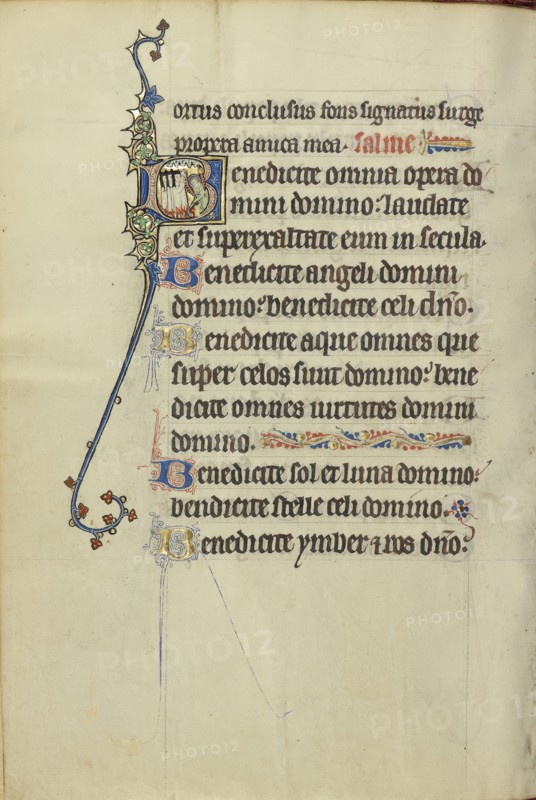 ortus conclusus fons signatus surge
propera amica mea. salme
Benedicite omnia opera do
mini domino: laudate
et superexaltate eum in secula.
Benedicite angeli domini
domino: benedicite celi dn̄o.
Benedicite aque omnes que
super celos sunt domino: bene
dicite omnes uirtutes domini
domino.
Benedicite sol et luna domino:
bendicite stelle celi domino.
Benedicite ymber ⁊ ros dn̄o:
PHOTO12
PHOTO12
PHOTO12
PHOTO12
PHOTO12
PHOTO12